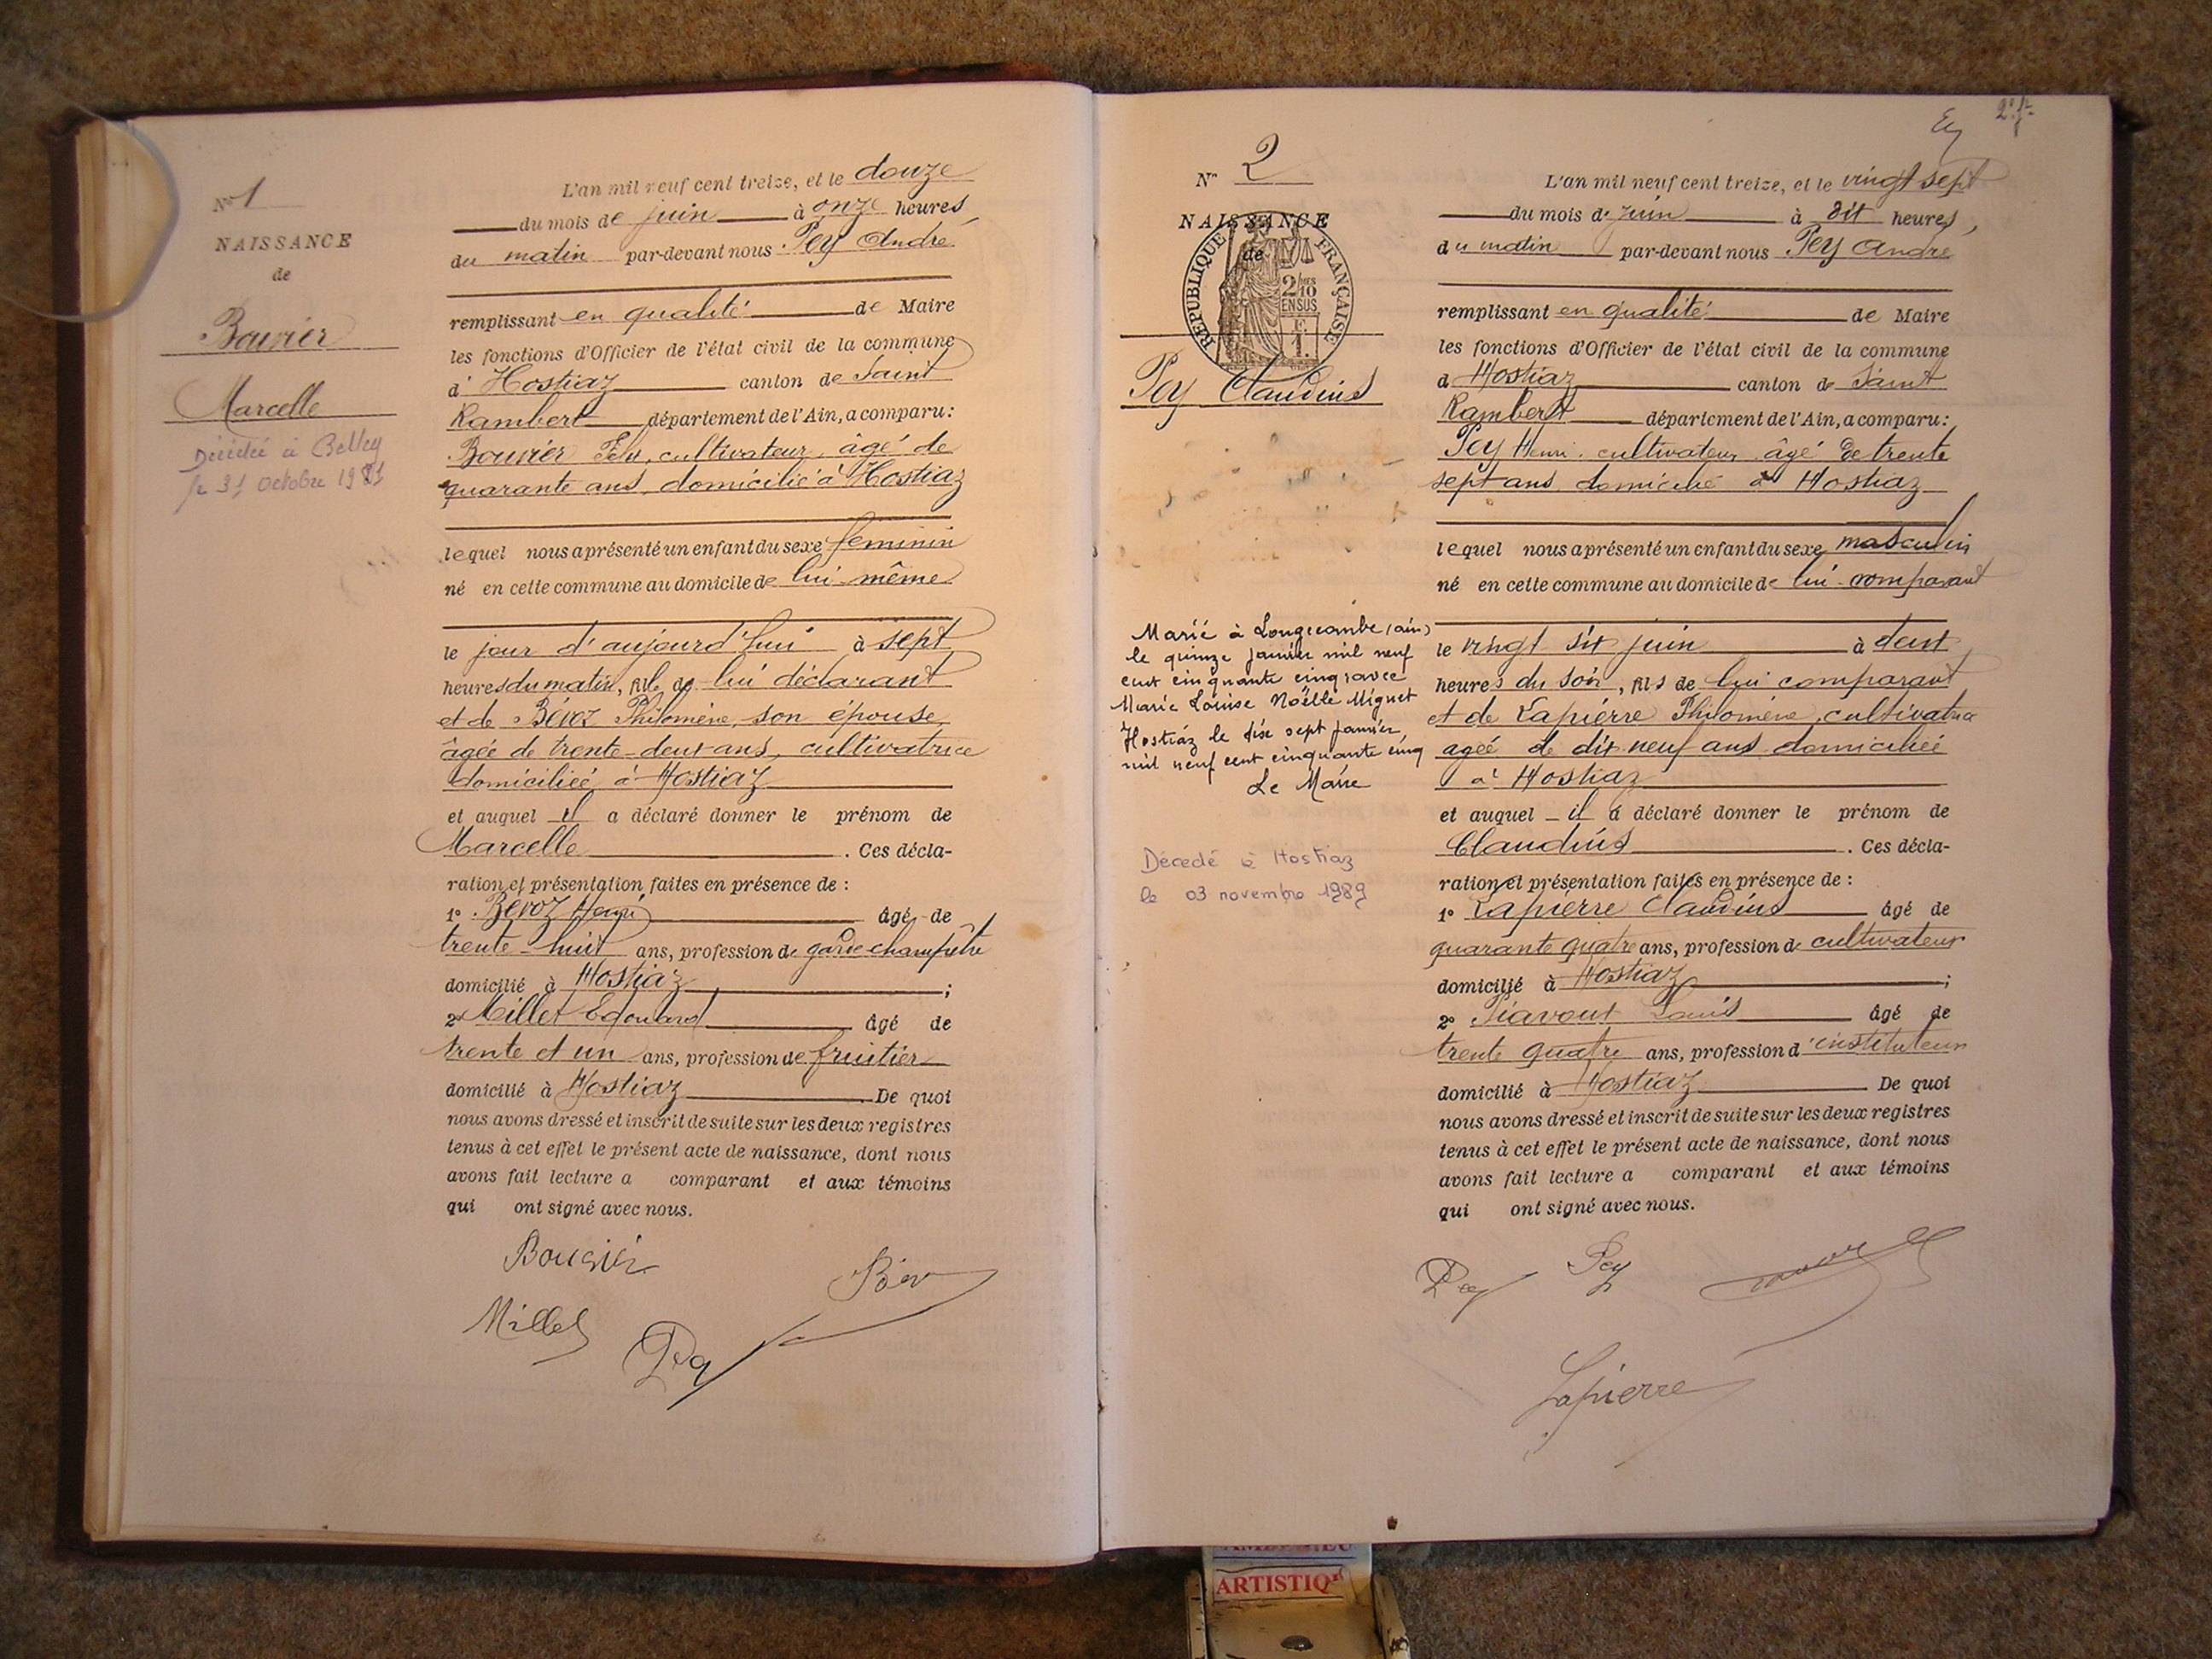 N° 1
NAISSANCE
de
Bouvier
Marcelle
Décédée à Belley
le 31 octobre 1981
L'an mil neuf cent treize, et le douze
du mois de juin à onze heures
du matin par-devant nous Pey André
remplissant en qualité de Maire
les fonctions d'Officier de l'état civil de la commune
d' Hostiaz canton de Saint
Rambert département de l'Ain, a comparu :
Bouvier Félix, cultivateur, âgé de
quarante ans, domicilié à Hostiaz
lequel nous a présenté un enfant du sexe féminin
né en cette commune au domicile de lui-même
le jour d'aujourd'hui à sept
heures du matin, fille de lui déclarant
et de Béroz Philomène, son épouse,
âgée de trente-deux ans, cultivatrice
domiciliée à Hostiaz
et auquel il a déclaré donner le prénom de
Marcelle . Ces décla-
ration et présentation faites en présence de :
1° Béroz Henri âgé de
trente-huit ans, profession de garde champêtre
domicilié à Hostiaz ;
2° Millet Edouard âgé de
trente et un ans, profession de fruitier
domicilié à Hostiaz De quoi
nous avons dressé et inscrit de suite sur les deux registres
tenus à cet effet le présent acte de naissance, dont nous
avons fait lecture a comparant et aux témoins
qui ont signé avec nous.
Bouvier
Millet
Pey
2
N° 2
NAISSANCE
de
RÉPUBLIQUE FRANÇAISE
2/10
EN SUS
Pey Claudius
Marié à Longecombe (ain)
le quinze janvier mil neuf
cent cinquante cinq avec
Marie Louise Noëlle Miguet
Hostiaz le dix sept janvier
mil neuf cent cinquante cinq
Le Maire
Décédé à Hostiaz
le 03 novembre 1989
L'an mil neuf cent treize, et le vingt sept
du mois de juin à dix heures,
du matin par-devant nous Pey André
remplissant en qualité de Maire
les fonctions d'Officier de l'état civil de la commune
d Hostiaz canton de Saint
Rambert département de l'Ain, a comparu :
Pey Henri, cultivateur, âgé de trente
sept ans, domicilié à Hostiaz
lequel nous a présenté un enfant du sexe masculin
né en cette commune au domicile de lui-comparant
le vingt six juin à deux
heures du soir, fils de lui comparant
et de Lapierre Philomène, cultivatrice
agée de dix-neuf ans domiciliée
à Hostiaz
et auquel il a déclaré donner le prénom de
Claudius . Ces décla-
ration et présentation faites en présence de :
1° Lapierre Claudius âgé de
quarante quatre ans, profession de cultivateur
domicilié à Hostiaz ;
2° Piavout Louis âgé de
trente quatre ans, profession d'instituteur
domicilié à Hostiaz De quoi
nous avons dressé et inscrit de suite sur les deux registres
tenus à cet effet le présent acte de naissance, dont nous
avons fait lecture a comparant et aux témoins
qui ont signé avec nous.
Pey
Pey
Lapierre
ARTISTIQ